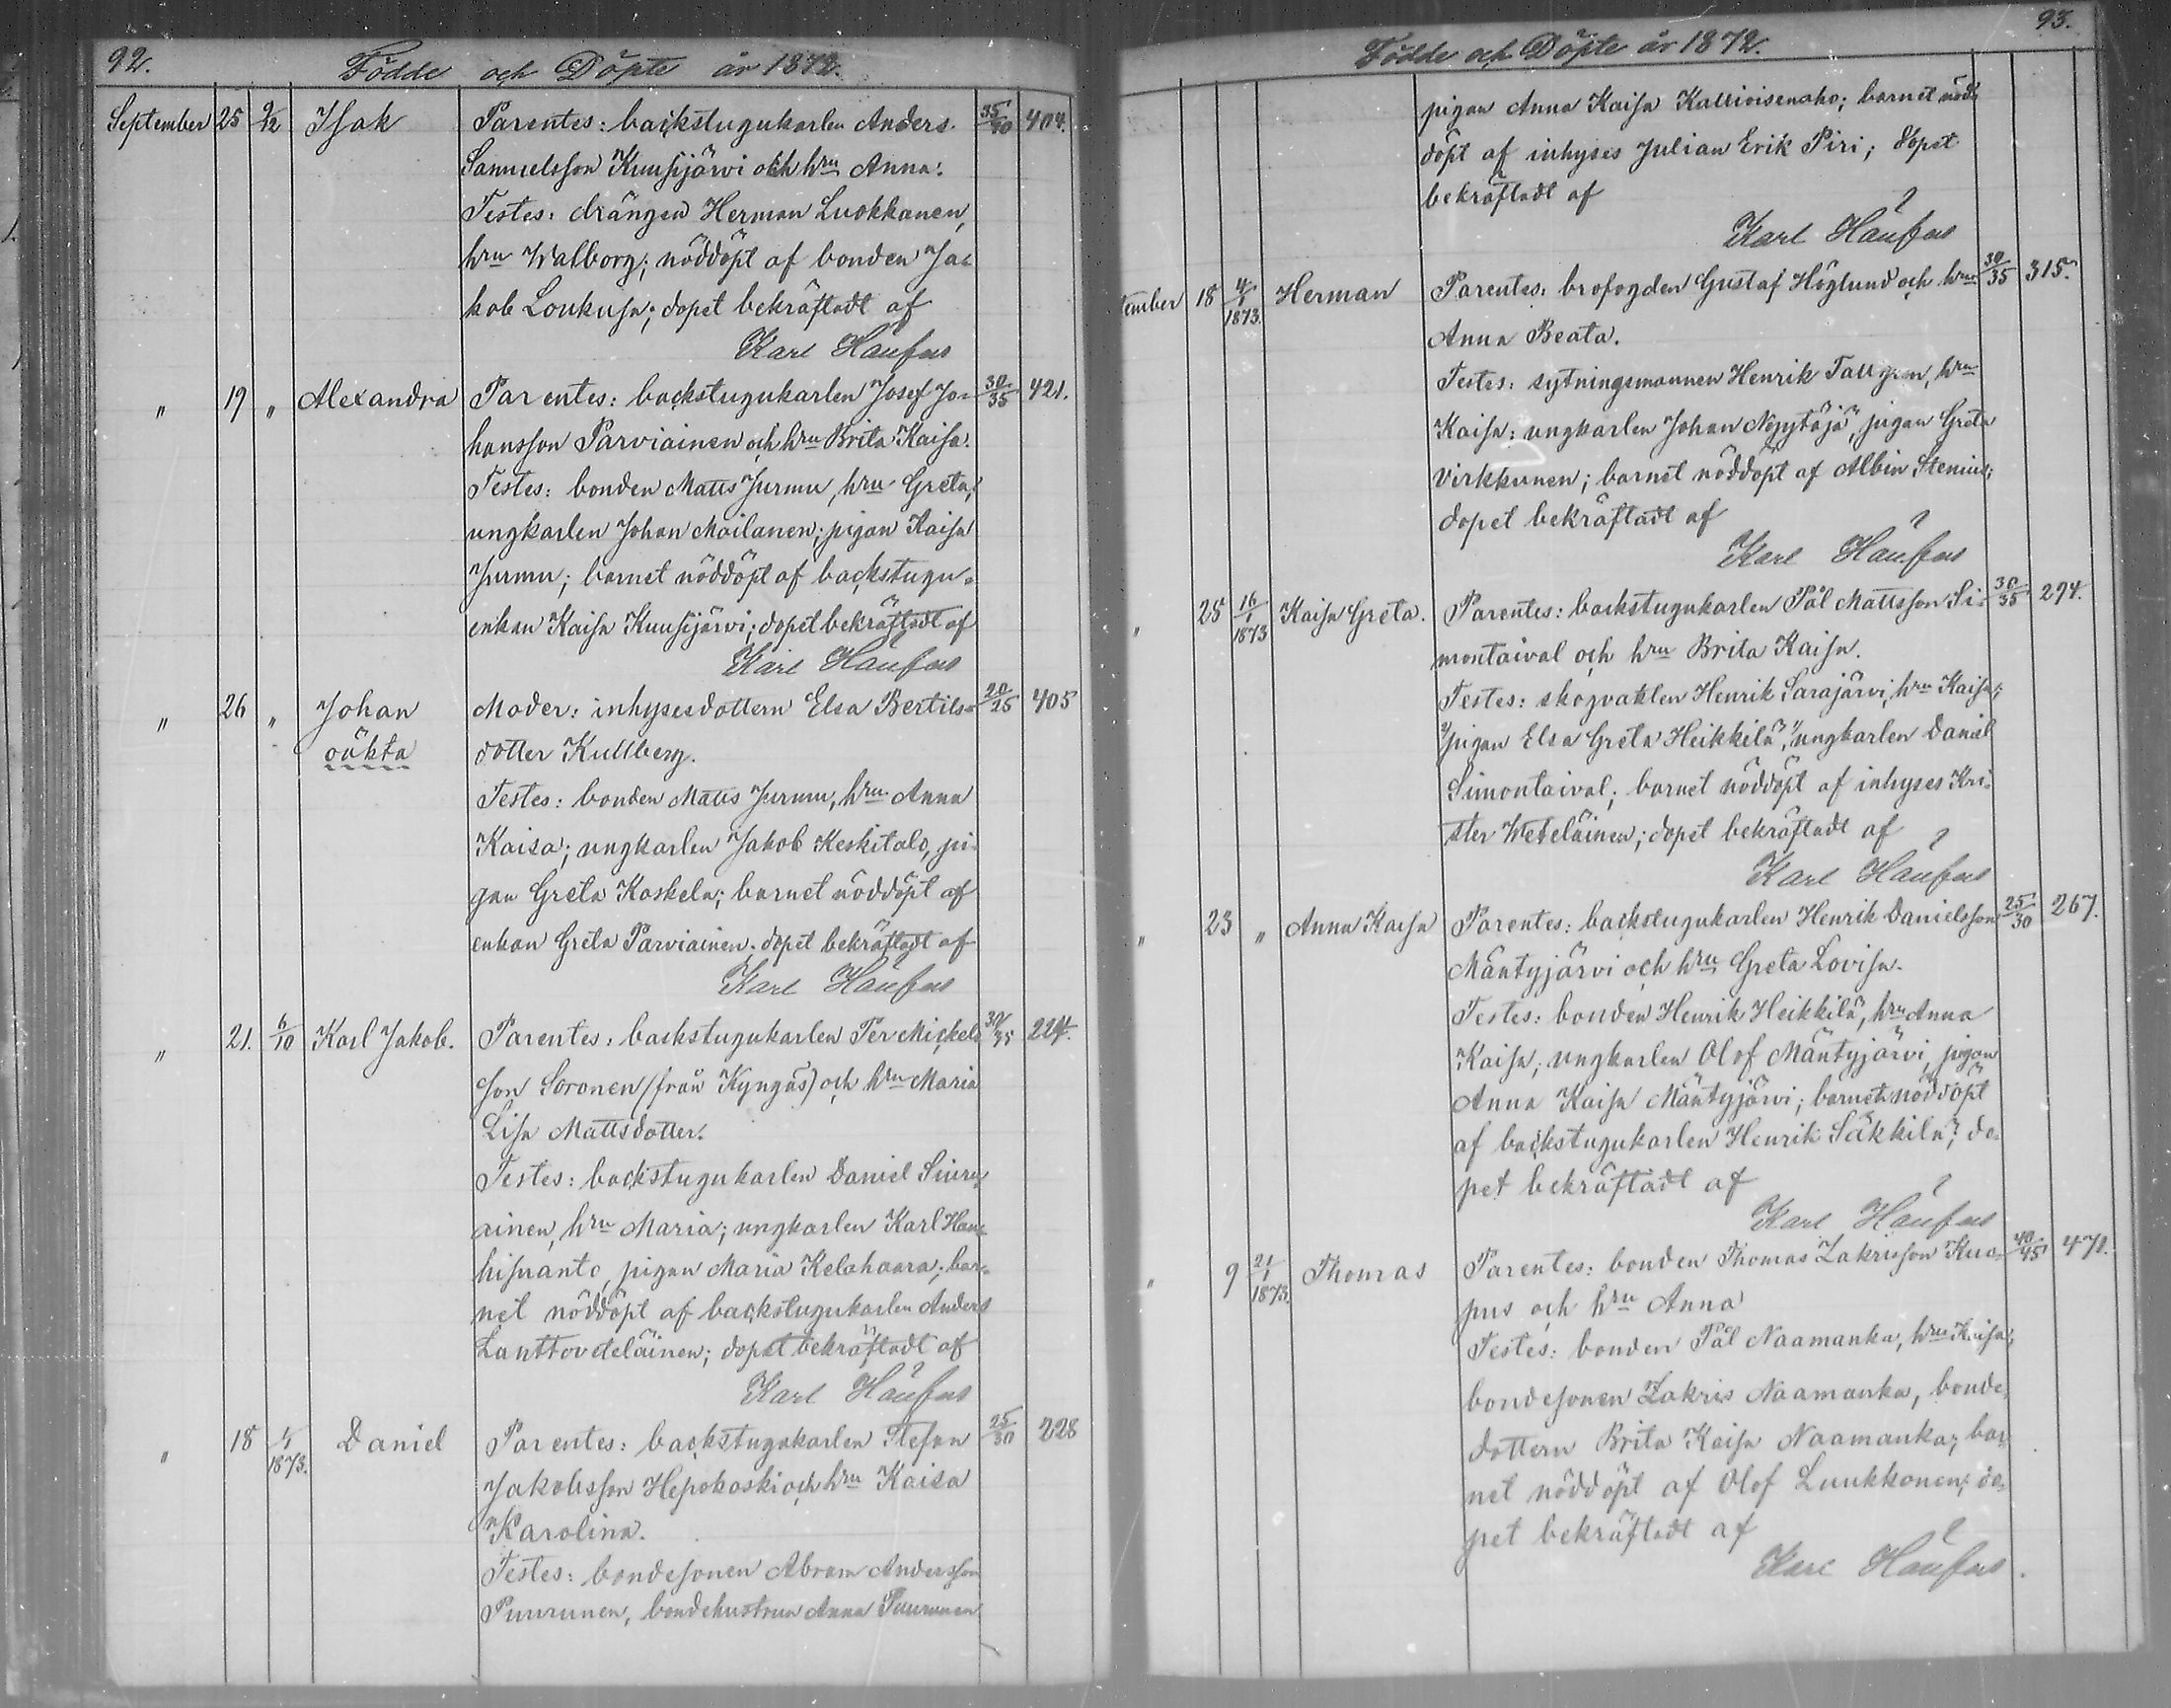 92.
Födde och Döpte år 1872.
September 25 9/12 Isak Parentes: backstugukarlen Anders 35/40 404.
Samuelsson Kuusijärvi och hru Anna.
Testes: drängen Herman Luokkanen,
hru Walborg; nöddöpt af bonden Ja-
kob Loukusa; dopet bekräftadt af
Karl
" 19 " Alexandra Parentes: backstugukarlen Josef Jo- 30/35 421.
hansson Parviainen och hru Brita Kaisa.
Testes: bonden Matts Jurmu, hru Greta;
ungkarlen Johan Moilanen; pigan Kaisa
Jurmu; barnet nöddöpt af backstugu-
enkan Kaisa Kuusijärvi; dopet bekräftadt af
Karl
" 26 " Johan Moder: inhysesdottern Elsa Bertils- 20/25 405
oäkta dotter Kullberg.
Testes: bonden Matts Jurmu, hru Anna
Kaisa; ungkarlen Jakob Keskitalo, pi-
gan Greta Koskela; barnet nöddöpt af
enkan Greta Parviainen; dopet bekräftadt af
Karl
" 21. 6/10 Karl Jakob. Parentes: backstugukarlen Per Mickels- 30/35 224.
son Soronen (från Kyngäs) och hru Maria
Lisa Mattsdotter.
Testes: backstugukarlen Daniel Siiru-
ainen, hru Maria; ungkarlen Karl Hau-
hisuanto, pigan Maria Kelahaara; bar-
net nöddöpt af backstugukarlen Anders
dopet bekräftadt af
Karl
" 18 4/1 1873. Daniel Parentes: backstugukarlen Stefan 25/30 228
Jakobsson Hepokoski och hru Kaisa
Karolina.
Testes: bondesonen Abram Andersson
Puurunen, bondehustrun Anna Puurunen
93.
Födde och Döpte år 1872.
pigan Anna Kaisa Kallioisenaho; barnet nöd-
döpt af inhyses Julian Erik Piri; dopet
bekräftadt af
Karl
tember 18 4/1 1873. Herman Parentes: brofogden Gustaf Höglund och hru 30/35 315.
Anna Beata.
Testes: sytningsmannen Henrik Tallgren, hru
Kaisa; ungkarlen Johan Nöyytäjä, pigan Greta
Virkkunen; barnet nöddöpt af Albin Stenius;
dopet bekräftadt af
Karl
" 25 16/1 1873 Kaisa Greta. Parentes: backstugukarlen Pål Mattsson Si- 30/35 294.
montaival och hru Brita Kaisa.
Testes: skogvakten Henrik Sarajärvi, hru Kaisa;
pigan Elsa Greta Heikkilä, ungkarlen Daniel
Simontaival; barnet nöddöpt af inhyses Kri-
ster Weteläinen; dopet bekräftadt af
Karl
" 23 " Anna Kaisa Parentes: backstugukarlen Henrik Danielsson 25/30 267.
Mäntyjärvi och hru Greta Lovisa.
Testes: bonden Henrik Heikkilä, hru Anna
Kaisa; ungkarlen Olof Mäntyjärvi, pigan
Anna Kaisa Mäntyjärvi; barnet nöddöpt
af backstugukarlen Henrik Säkkilä; do-
pet bekräftadt af
Karl
" 9 21/1 1873. Thomas Parentes: bonden Thomas Zakrisson Kuo- 40/45 471.
pus och hru Anna
Testes: bonden Pål Naamanka, hru Kaisa;
bondesonen Zakris Naamanka, bonde-
dottern Brita Kaisa Naamanka; bar-
net nöddöpt af Olof Luukkonen; do-
pet bekräftadt af
Karl